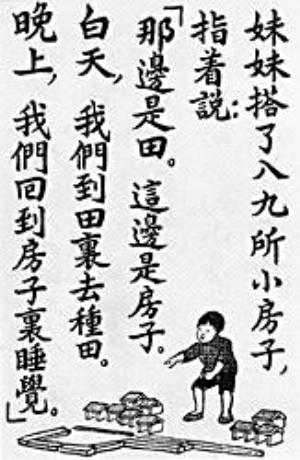 妹妹搭了八九所小房子,
指着説:
「那邊是田。這邊是房子。
白天,我們到田裏去種田。
晚上,我們回到房子裏睡覺。」